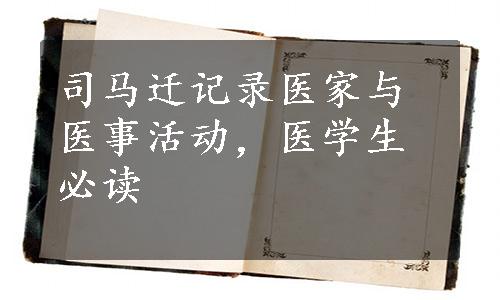 司马迁记录医家与
医事活动，医学生
必读